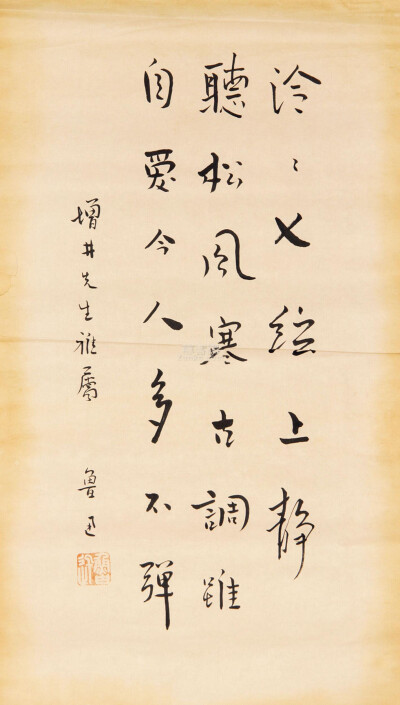 泠〻七絃上靜
聽松風寒古調雖
自愛今人多不彈
增井先生雅屬
魯迅